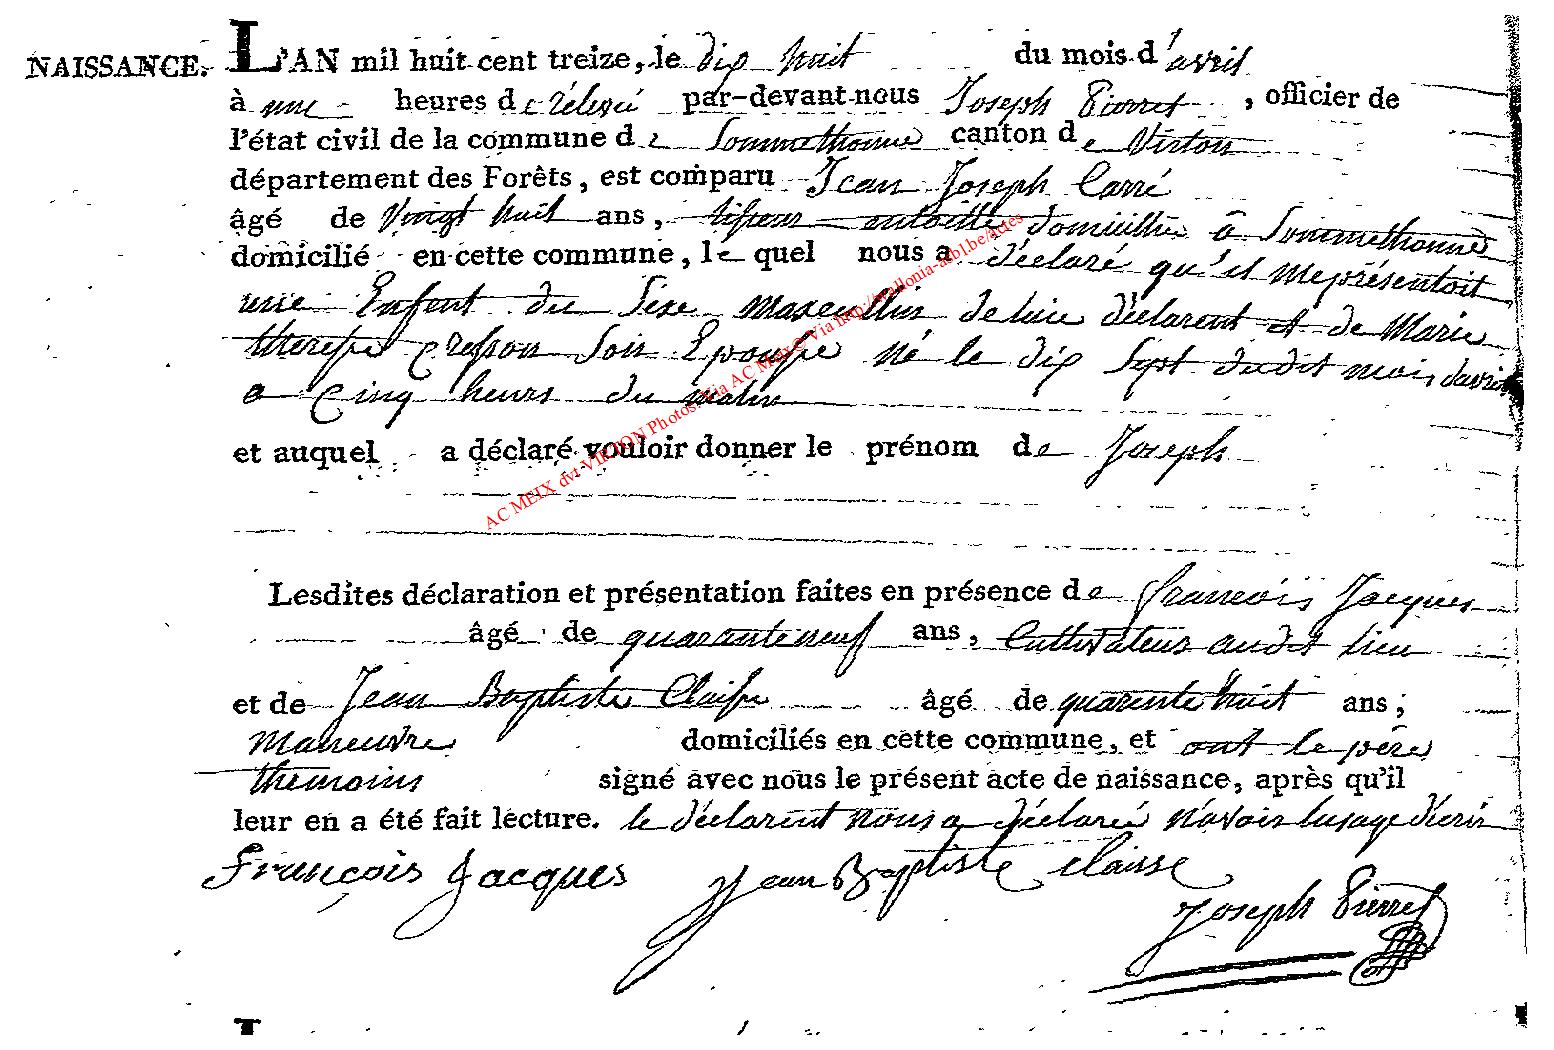 NAISSANCE. L'AN mil huit cent treize, le dix huit du mois d'avril
à une heures de rélevé par-devant nous Joseph Pierret, officier de
l'état civil de la commune de Sommethonne canton de Virton
département des Forêts, est comparu Jean Joseph Carré
âgé de Vingt huit ans, tisseur entoille domicillié à Sommethonne
domicilié en cette commune, lequel nous a déclaré qu'il meprésentoit
une Enfent du Sexe Mascullin de luie déclarent et de Marie
theresse Cresson Son Epousse né le dix Sept dudit mois davril
a Cinq heurs du matin
et auquel a déclaré vouloir donner le prénom de Joseph
Lesdites déclaration et présentation faites en présence de francois Jacques
âgé de quaranteneuf ans, Cultivateur audit lieu
et de Jean Baptiste Claisse âgé de quarente huit ans;
Maneuvre domiciliés en cette commune, et ont le père
themoins signé avec nous le présent acte de naissance, après qu'il
leur en a été fait lecture. le déclarent nous a déclaré n'avoir lusage décrir
François Jacques Jean Baptiste claisse
Joseph Pierret
AC MEIX dvt VIRTON Photos: Via AC Meix© Via http://wallonia-asbl.be/Actes